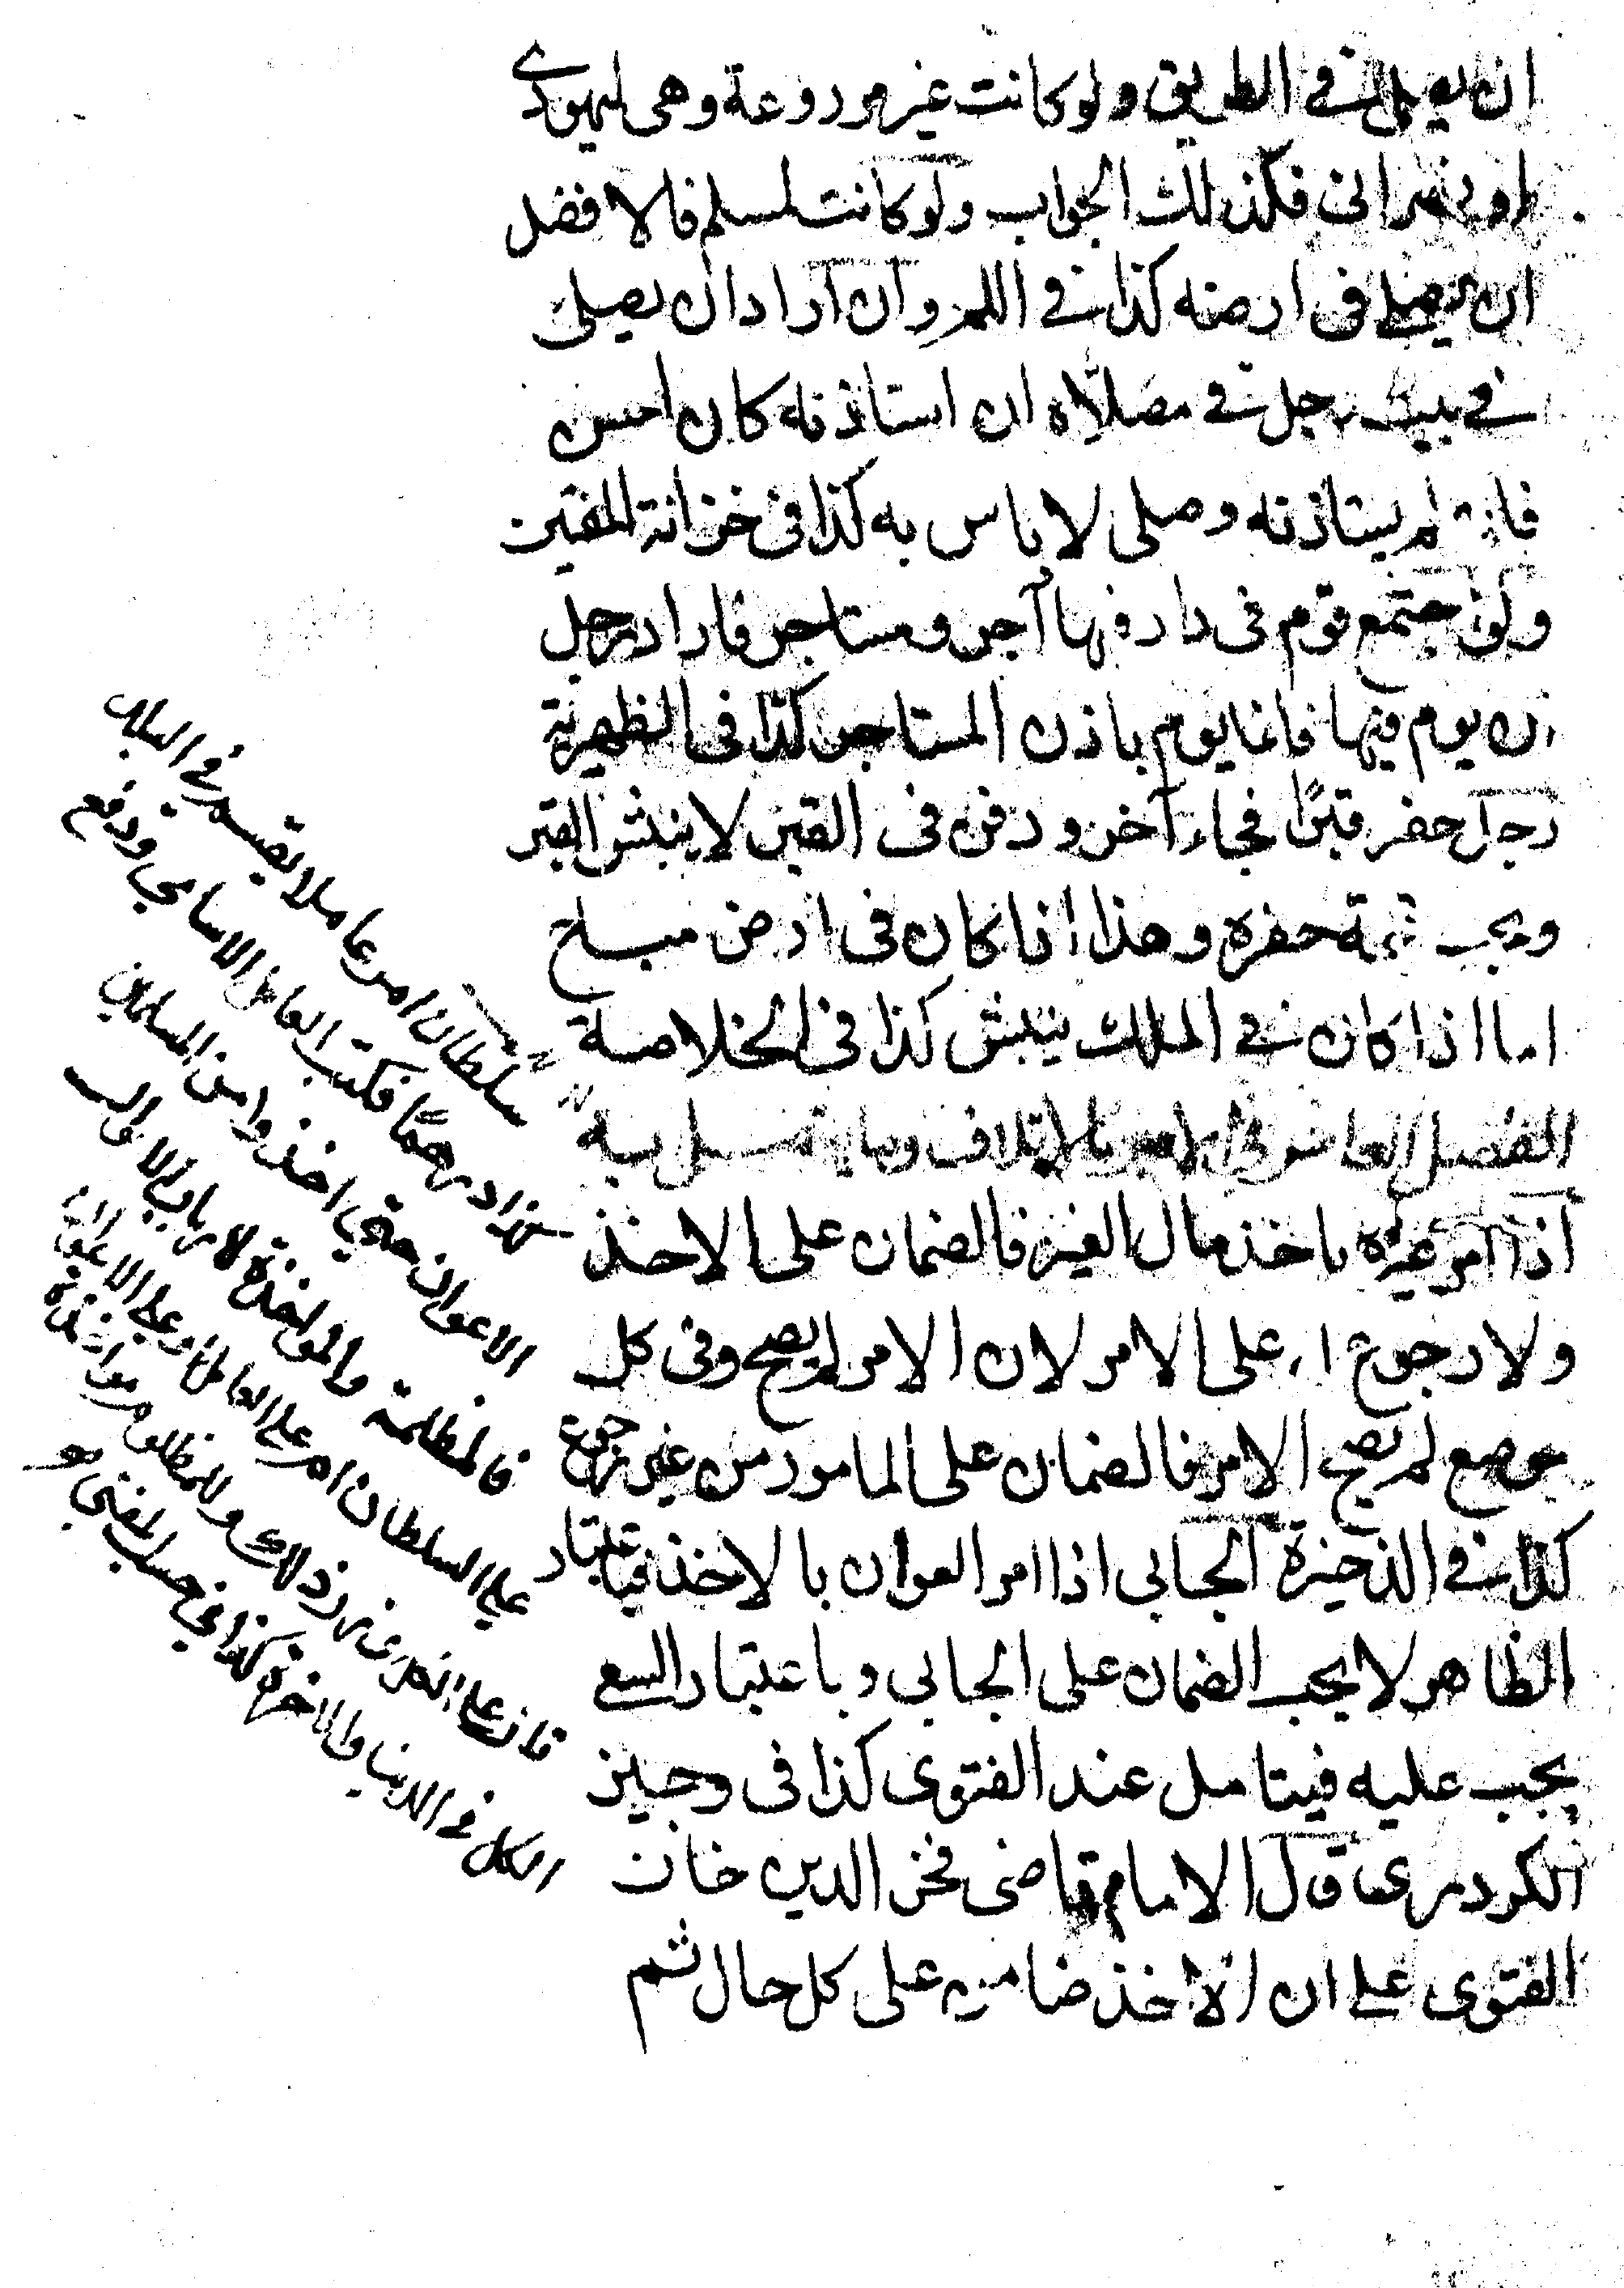 ان يصلي في الطريق ولو كانت غير مزروعة وهى ليهودى
او نصرانى فكذلك الجواب ولو كانت لمسلم فالافضل
ان يصلي فى ارضه كذا في اللمه وان اراد ان يصلى
في بيت رجل في مصلاه ان استاذنه كان احسن
فان لم يستاذنه وصلى لا باس به كذا فى خزانة المفتين
ولو اجتمع قوم فى دار فيها آجر ومستاجر فاراد رجل
ان يوم فيها فانما يوم باذن المستاجر كذا فى الظهيرية
رجل حفر قبرًا فجاء آخر ودفن فى القبر لا ينبش القبر
ويجب قيمة حفره وهذا اذا كان فى ارض مباح
اما اذا كان في الملك ينبش كذا فى الخلاصة
الفصل العاشر في الامر بالاتلاف وما يتصل به
اذا امر غيره باخذ مال الغير فالضمان على الاخذ
ولا رجوع له على الامر لان الامر لم يصح وفى كل
موضع لم يصح الامر فالضمان على المامور من غير رجوع
كذا في الذخيرة الجابى اذا امر العوان بالاخذ فباعتبار
الظاهر لا يجب الضمان على الجابى وباعتبار السع
يجب عليه فيتامل عند الفتوى كذا فى وجيز
الكردرى قال الامام قاضى فخر الدين خان
الفتوى على ان الاخذ ضامن على كل حال ثم
سلطان امر عاملا يقسم في البلد
درهمًا فكتب العامل الاسامي ودفع
الاعوان حتى اخذوا من المسلمين
فالمظلمة والمواخذة لارباب الاموال
على السلطان ام على العامل او على الاعوان
فان على الدنيا ذلك وللمظلوم مواخذة
الكل في الدنيا والاخرة كذا في حسب المفتى